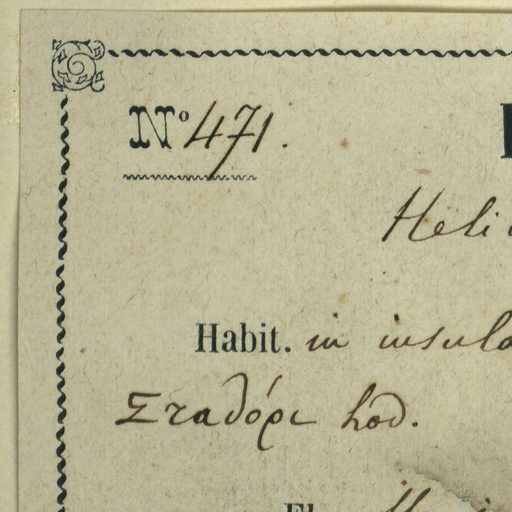 Nº 471.
Heli
Habit. in insula
Σταδόρι hod.